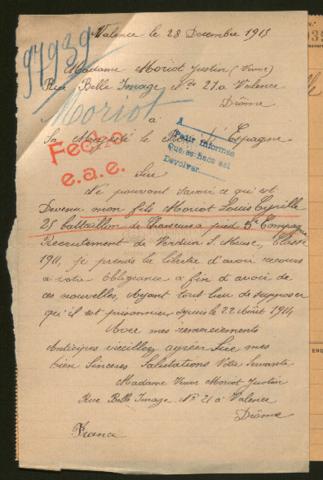 Valence le 28 Decembre 1915
97939
Madame Moriot Justin (Vive)
Rue Belle Image Nº 21 a Valence
Drôme
Moriot
a
Sa Majesté le Roi d'Espagne
A
Pedir informes
Que se haga así
Devolver
Fecha
e.a.e.
Sire
Ne pouvant savoir ce qu'est
Devenu mon fils Moriot Louis Cyrille
25 battaillon de Chasseurs a pied 5e Compag
Recrutement de Verdun s Meuse, Classe
1911, je prends la liberté d'avoir recours
a votre Obligeance a fin d'avoir de
ces nouvelles, Ayant tout lieu de supposer
qu'il est prisonnier depuis le 22 Août 1914
Avec mes remerciements
Anticipés veuillez agréer Sire mes
bien Sincères Salutations Votre Servante
Madame Vve Moriot Justin
Rue Belle Image Nº 21 a Valence
Drôme
France